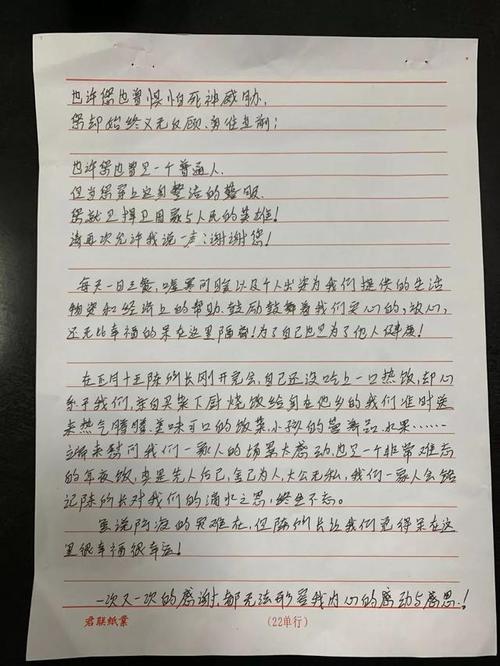 也许您也曾惧怕死神威胁,
您却始终义无反顾、勇往直前;
也许您也曾是一个普通人,
但当您穿上这身整洁的警服,
您就是捍卫国家与人民的英雄!
请再次允许我说一声:谢谢您!
每天一日三餐,嘘寒问暖以及个人出资为我们提供的生活
物资和经济上的帮助、鼓励鼓舞着我们安心的,放心,
还无比幸福的呆在这里隔离!为了自己也是为了他人健康!
在正月十五陈所长刚开完会,自己还没吃上一口热饭,却心
系于我们,亲自买菜下厨烧饭给身在他乡的我们准时送
来热气腾腾美味可口的饭菜,小孩的营养品水果……
立端来替问我们一家人的场景太感动,也是一个非常难忘
的年夜饭,真是先人后己,舍己为人,大公无私,我们一家人会铭
记陈所长对我们的滴水之恩,终生不忘。
虽说隔离的艰难在,但陈所长让我们觉得呆在这
里很幸福很幸运!
一次又一次的感谢,都无法形容我内心的感动与感恩!
君联纸业
(22单行)